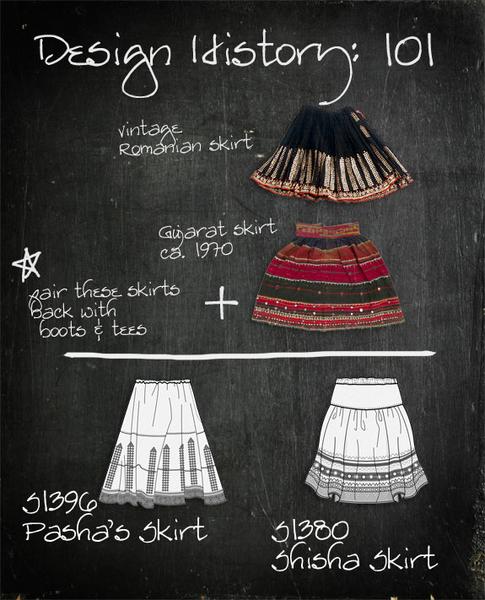 Design History: 101
vintage
Romanian skirt
Gujarat skirt
ca. 1970
pair these skirts
back with
boots & tees
+
S1396
Pasha's Skirt
S1380
Shisha Skirt